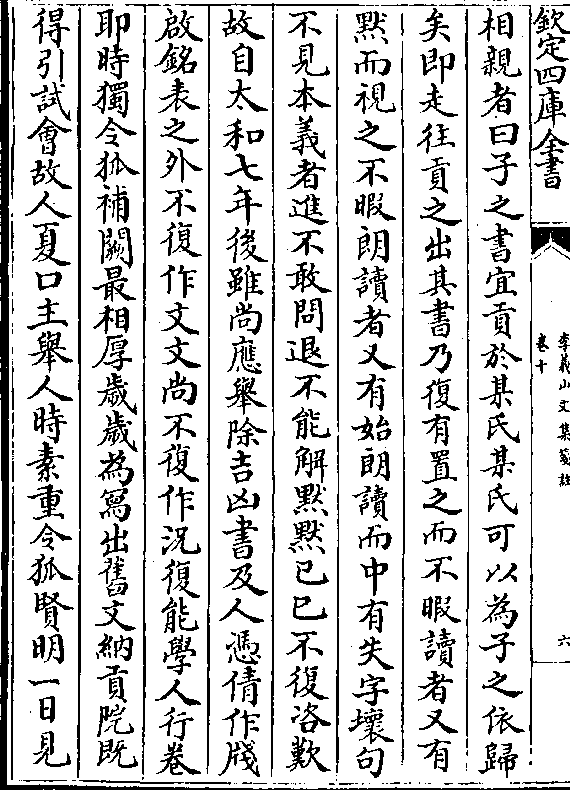 欽定四庫全書
李義山文集箋註
卷十
六
相親者曰子之書宜貢於某氏某氏可以為子之依歸
矣即走往貢之出其書乃復有置之而不暇讀者又有
黙而視之不暇朗讀者又有始朗讀而中有失字壞句
不見本義者進不敢問退不能解黙黙已已不復咨歎
故自太和七年後雖尚應舉除吉凶書及人憑倩作牋
啟銘表之外不復作文文尚不復作況復能學人行卷
耶時獨令狐補闕最相厚歲歲為寫出舊文納貢院既
得引試會故人夏口主舉人時素重令狐賢明一日見